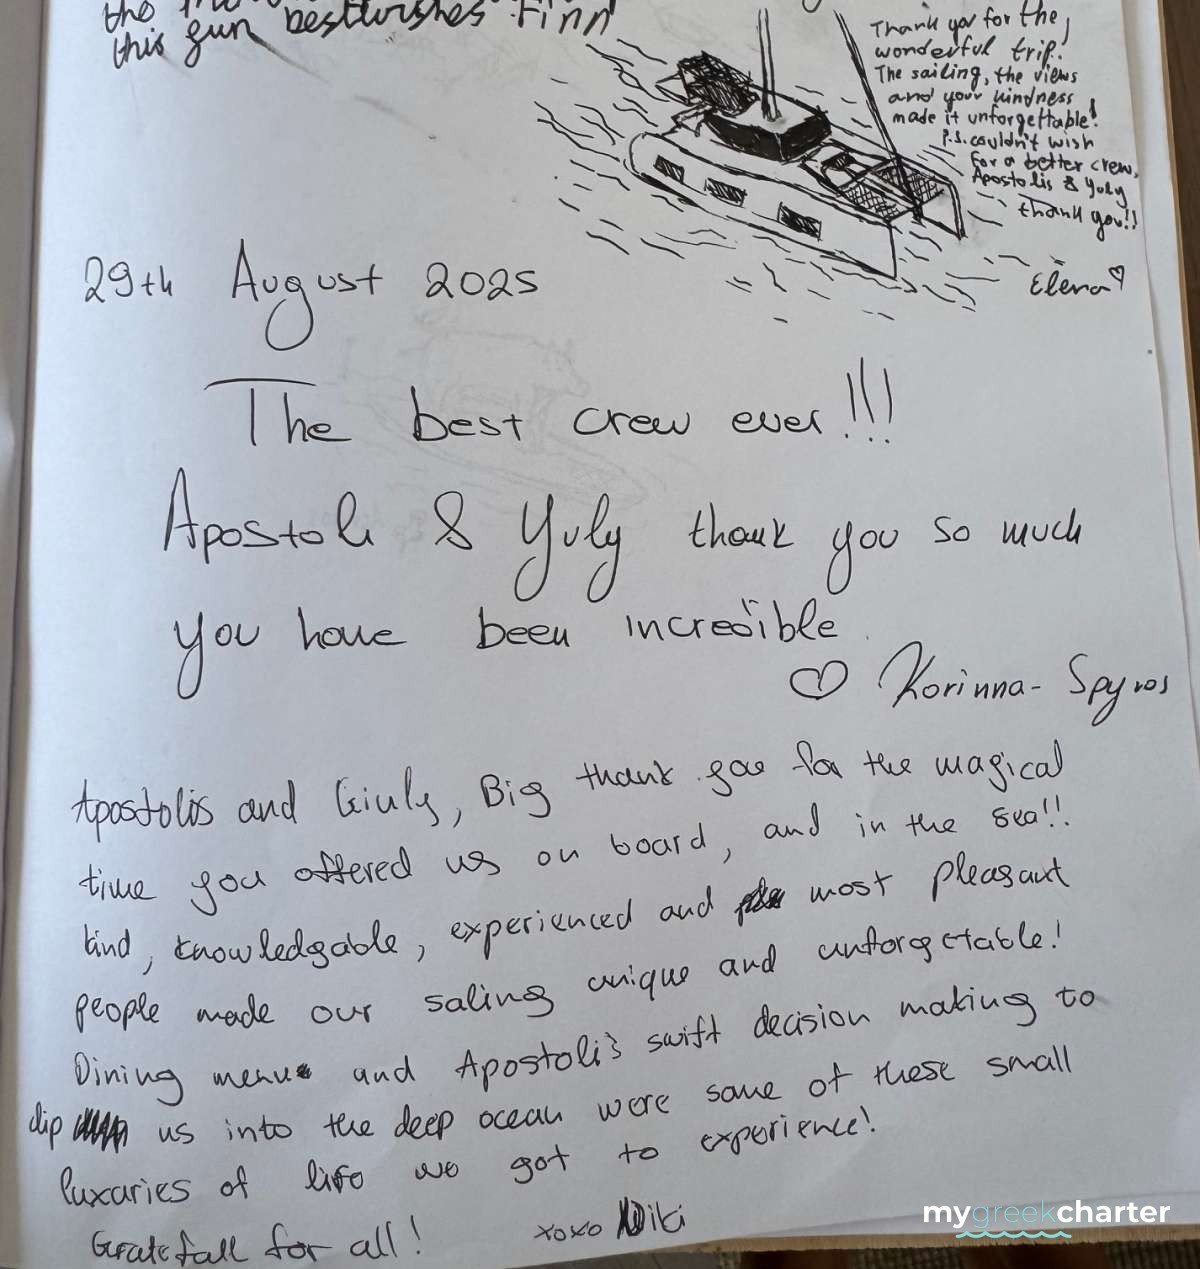 this fun bestwishes Finn
Thank you for the
wonderful trip!
The sailing, the views
and your kindness
made it unforgettable!
P.S. couldn't wish
for a better crew,
Apostolis & Yuly
thank you!!
Elena
29th August 2025
The best crew ever!!!
Apostoli & Yuly thank you so much
you have been incredible
Korinna - Spyros
Apostolis and Giuly, Big thank you for the magical
time you offered us on board, and in the sea!!
kind, knowledgable, experienced and most pleasant
people made our saling unique and unforgetable!
Dining menus and Apostoli's swift decision making to
dip us into the deep ocean were some of these small
luxaries of life we got to experience!
Gratefull for all! xoxo Niki
mygreekcharter